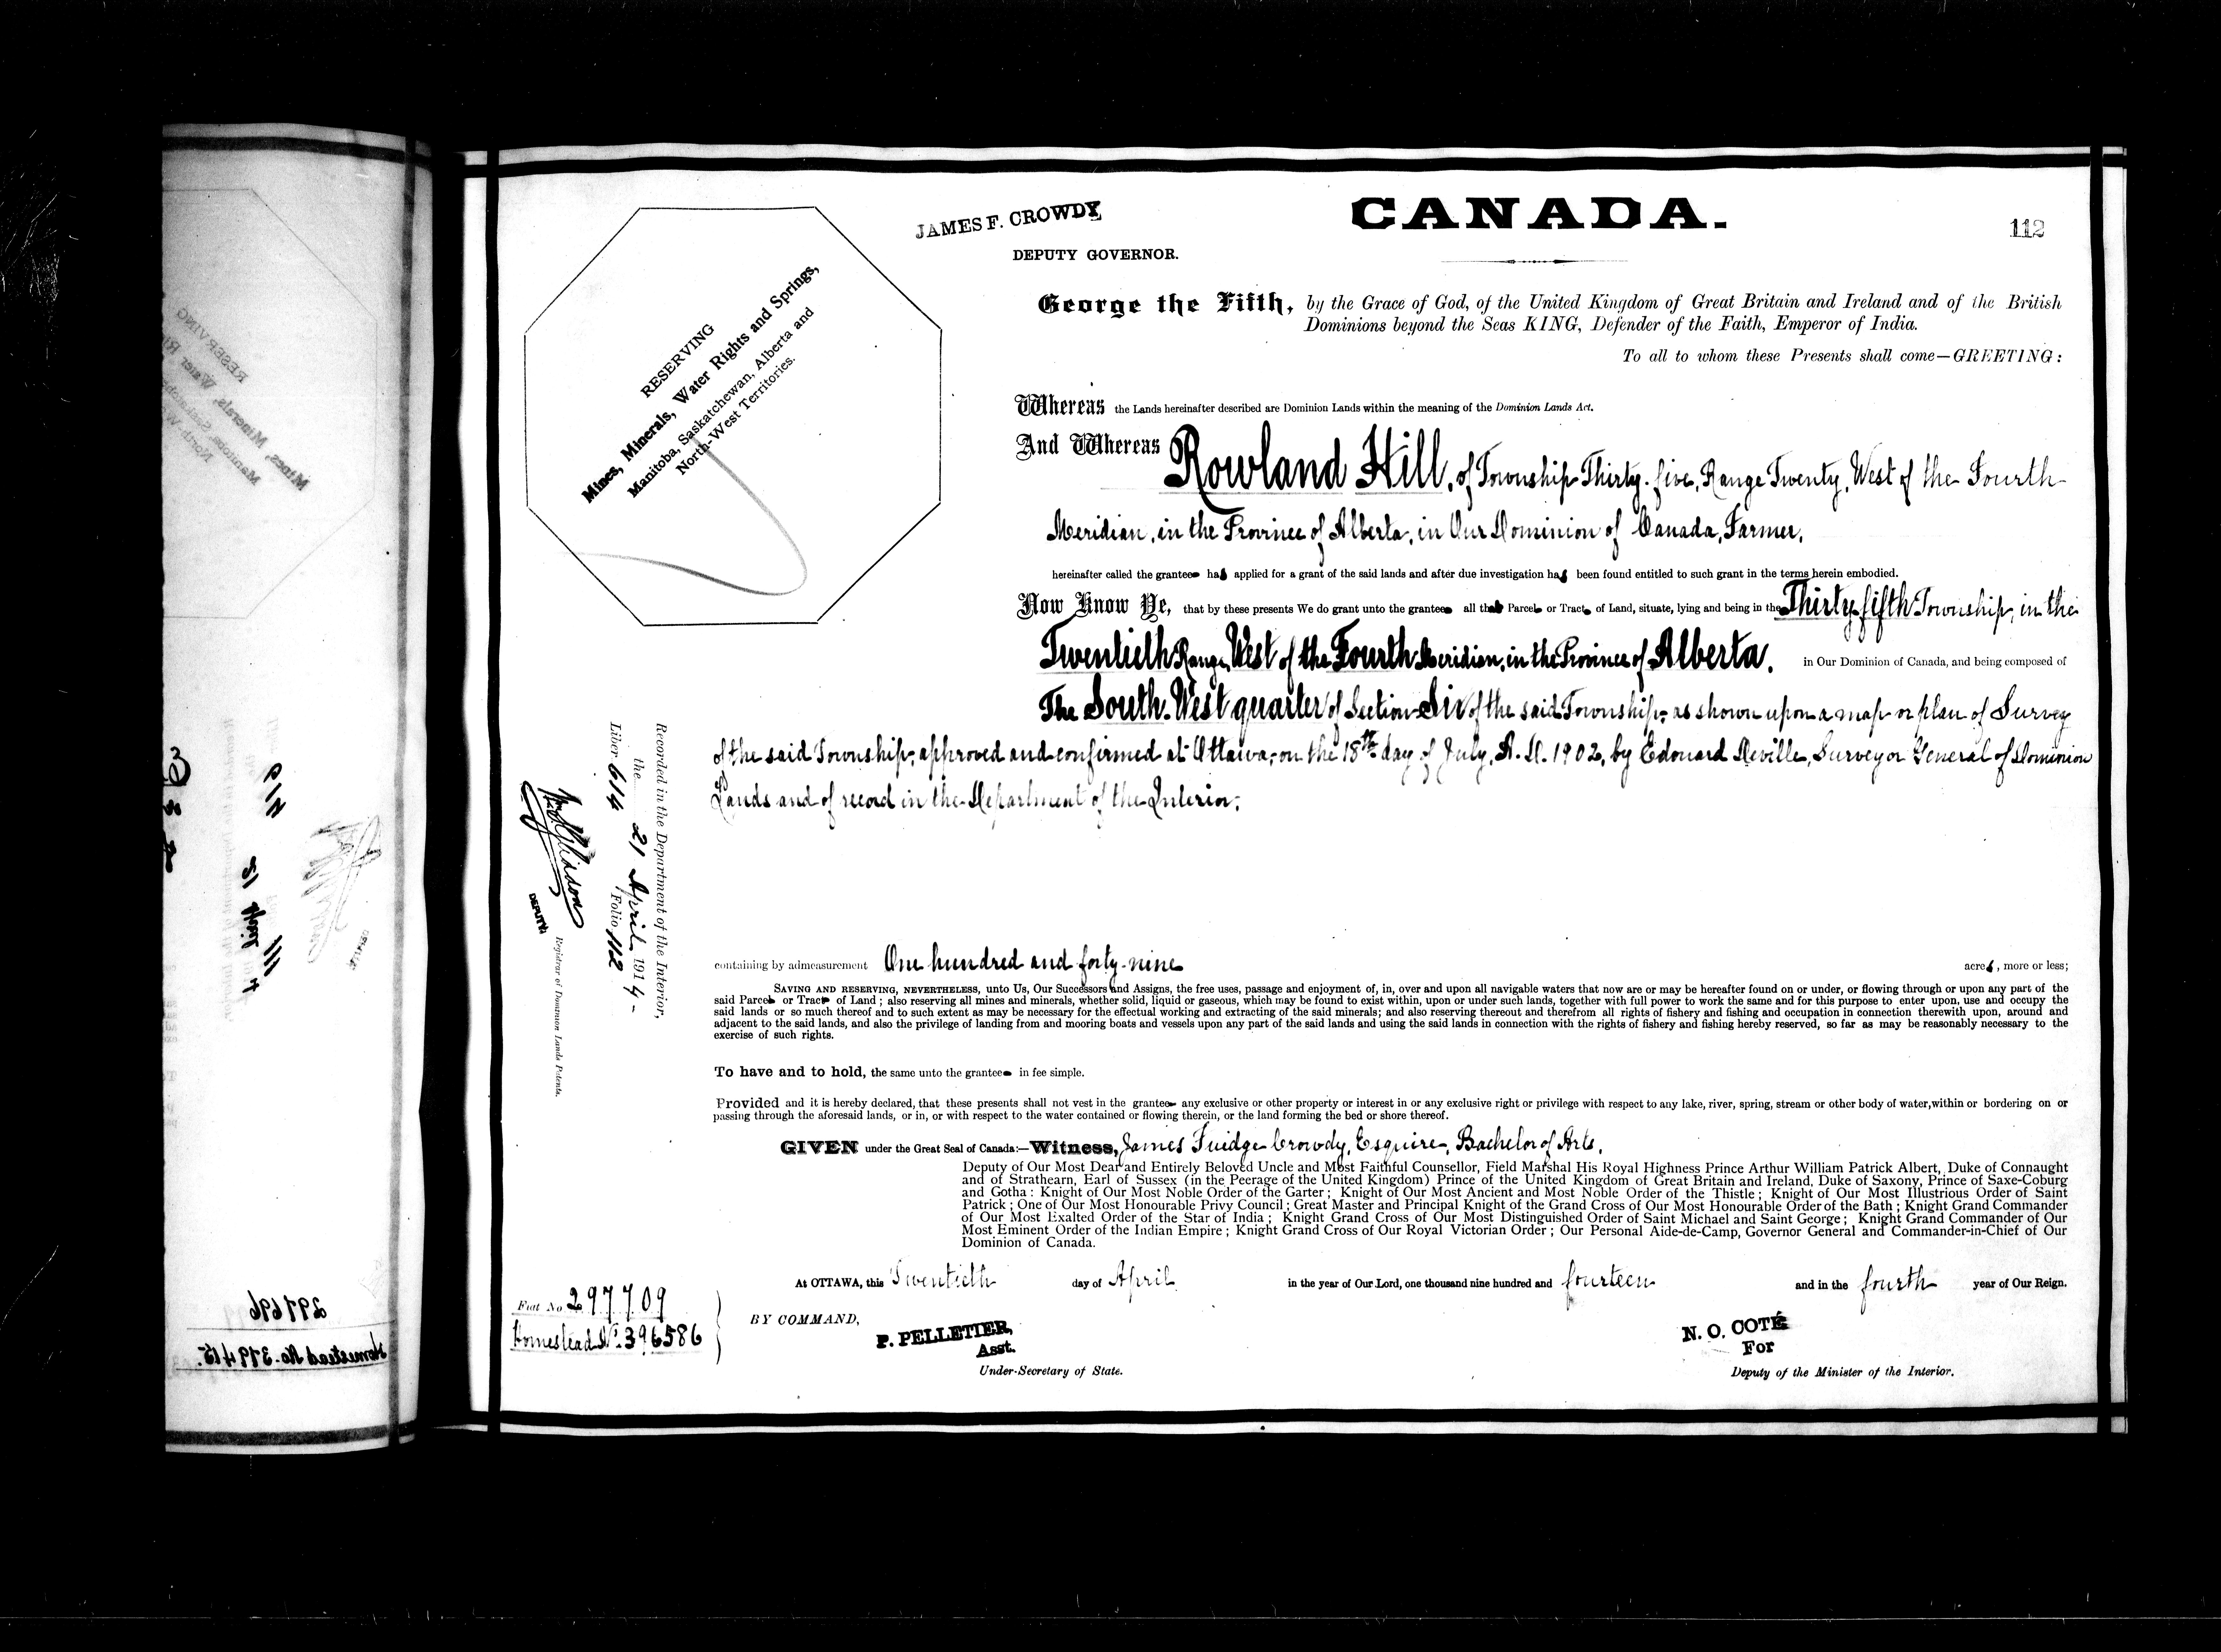 JAMES F. CROWDY
DEPUTY GOVERNOR.
CANADA.
112
RESERVING
Mines, Minerals, Water Rights and Springs,
Manitoba, Saskatchewan, Alberta and
North-West Territories.
George the Fifth, by the Grace of God, of the United Kingdom of Great Britain and Ireland and of the British
Dominions beyond the Seas KING, Defender of the Faith, Emperor of India.
To all to whom these Presents shall come—GREETING:
Whereas the Lands hereinafter described are Dominion Lands within the meaning of the Dominion Lands Act.
And Whereas Rowland Hill, of Township Thirty-five, Range Twenty, West of the Fourth
Meridian, in the Province of Alberta, in Our Dominion of Canada, Farmer,
hereinafter called the grantee has applied for a grant of the said lands and after due investigation has been found entitled to such grant in the terms herein embodied.
Now Know Ye, that by these presents We do grant unto the grantee all that Parcel or Tract of Land, situate, lying and being in the Thirty-fifth Township, in the
Twentieth Range, West of the Fourth Meridian, in the Province of Alberta, in Our Dominion of Canada, and being composed of
The South-West quarter of Section Six of the said Township, as shown upon a map or plan of Survey
of the said Township, approved and confirmed at Ottawa, on the 18th day of July, A. D. 1902, by Edouard Deville, Surveyor General of Dominion
Lands and of record in the Department of the Interior;
containing by admeasurement One hundred and forty-nine acres, more or less;
SAVING AND RESERVING, NEVERTHELESS, unto Us, Our Successors and Assigns, the free uses, passage and enjoyment of, in, over and upon all navigable waters that now are or may be hereafter found on or under, or flowing through or upon any part of the
said Parcel or Tract of Land; also reserving all mines and minerals, whether solid, liquid or gaseous, which may be found to exist within, upon or under such lands, together with full power to work the same and for this purpose to enter upon, use and occupy the
said lands or so much thereof and to such extent as may be necessary for the effectual working and extracting of the said minerals; and also reserving thereout and therefrom all rights of fishery and fishing and occupation in connection therewith upon, around and
adjacent to the said lands, and also the privilege of landing from and mooring boats and vessels upon any part of the said lands and using the said lands in connection with the rights of fishery and fishing hereby reserved, so far as may be reasonably necessary to the
exercise of such rights.
To have and to hold, the same unto the grantee in fee simple.
Provided and it is hereby declared, that these presents shall not vest in the grantee any exclusive or other property or interest in or any exclusive right or privilege with respect to any lake, river, spring, stream or other body of water, within or bordering on or
passing through the aforesaid lands, or in, or with respect to the water contained or flowing therein, or the land forming the bed or shore thereof.
GIVEN under the Great Seal of Canada:—Witness, James Fuidge Crowdy, Esquire, Bachelor of Arts,
Deputy of Our Most Dear and Entirely Beloved Uncle and Most Faithful Counsellor, Field Marshal His Royal Highness Prince Arthur William Patrick Albert, Duke of Connaught
and of Strathearn, Earl of Sussex (in the Peerage of the United Kingdom) Prince of the United Kingdom of Great Britain and Ireland, Duke of Saxony, Prince of Saxe-Coburg
and Gotha: Knight of Our Most Noble Order of the Garter; Knight of Our Most Ancient and Most Noble Order of the Thistle; Knight of Our Most Illustrious Order of Saint
Patrick; One of Our Most Honourable Privy Council; Great Master and Principal Knight of the Grand Cross of Our Most Honourable Order of the Bath; Knight Grand Commander
of Our Most Exalted Order of the Star of India; Knight Grand Cross of Our Most Distinguished Order of Saint Michael and Saint George; Knight Grand Commander of Our
Most Eminent Order of the Indian Empire; Knight Grand Cross of Our Royal Victorian Order; Our Personal Aide-de-Camp, Governor General and Commander-in-Chief of Our
Dominion of Canada.
At OTTAWA, this Twentieth day of April in the year of Our Lord, one thousand nine hundred and fourteen and in the fourth year of Our Reign.
BY COMMAND,
P. PELLETIER,
Asst.
Under-Secretary of State.
N. O. COTÉ
For
Deputy of the Minister of the Interior.
Recorded in the Department of the Interior,
the 21 April 1914-
Liber 614 Folio 112
DEPUTY
Registrar of Dominion Lands Patents.
Fiat No 297709
Homestead No. 396586
297696
Homestead No. 379415.